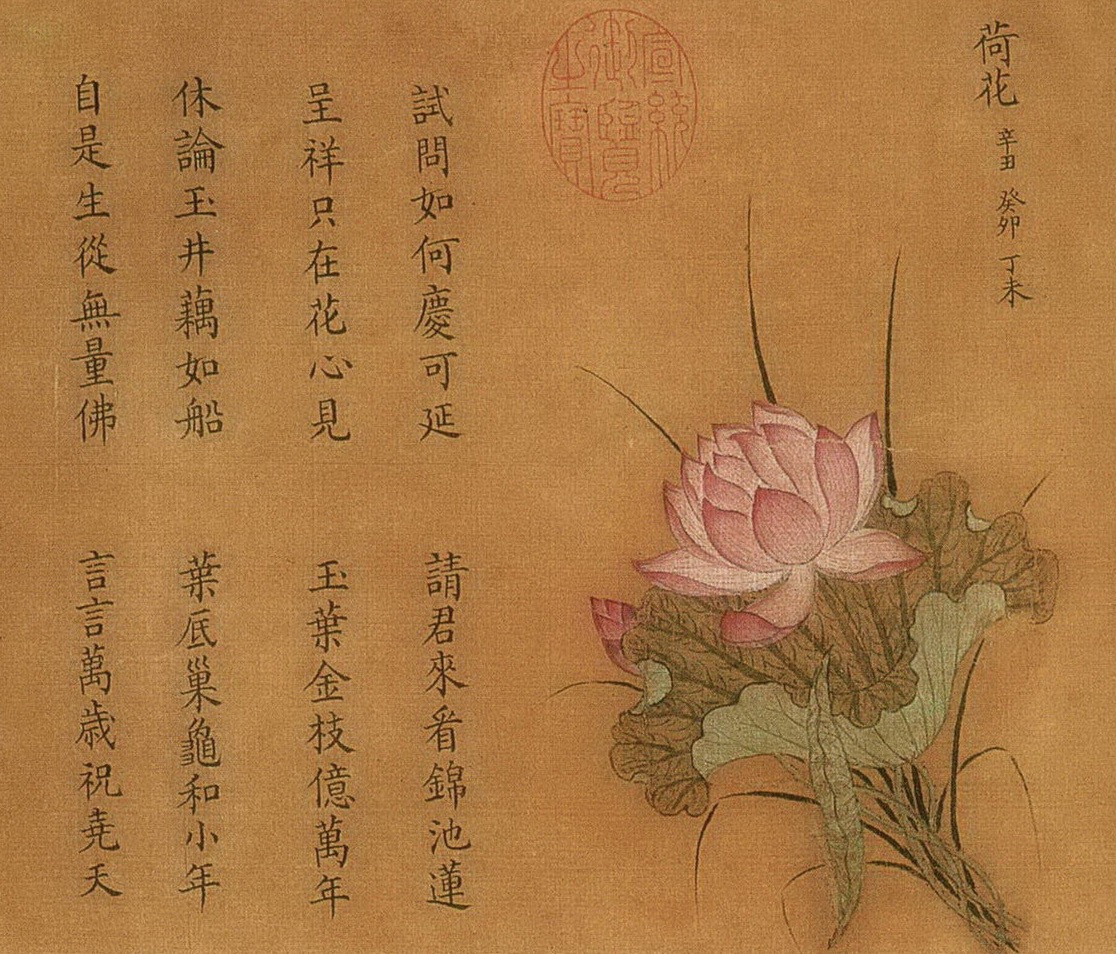 荷花 辛田 癸卯 丁未
宣統御覽之寶
試問如何慶可延 請君來看錦池蓮
呈祥只在花心見 玉葉金枝億萬年
休論玉井藕如船 葉底巢龜和小年
自是生從無量佛 言言萬歲祝堯天